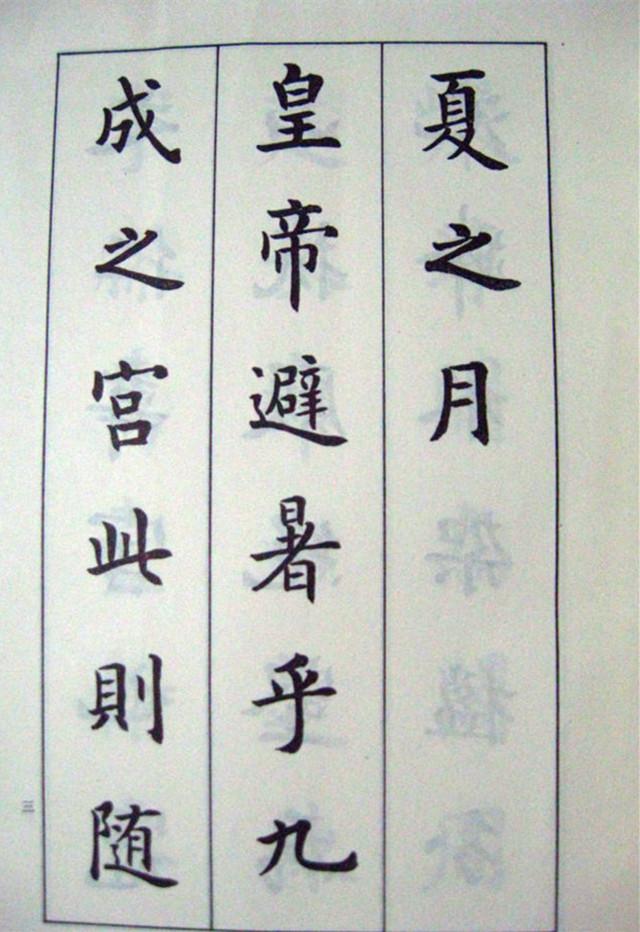 夏之月
皇帝避暑乎九
成之宮此則随
三